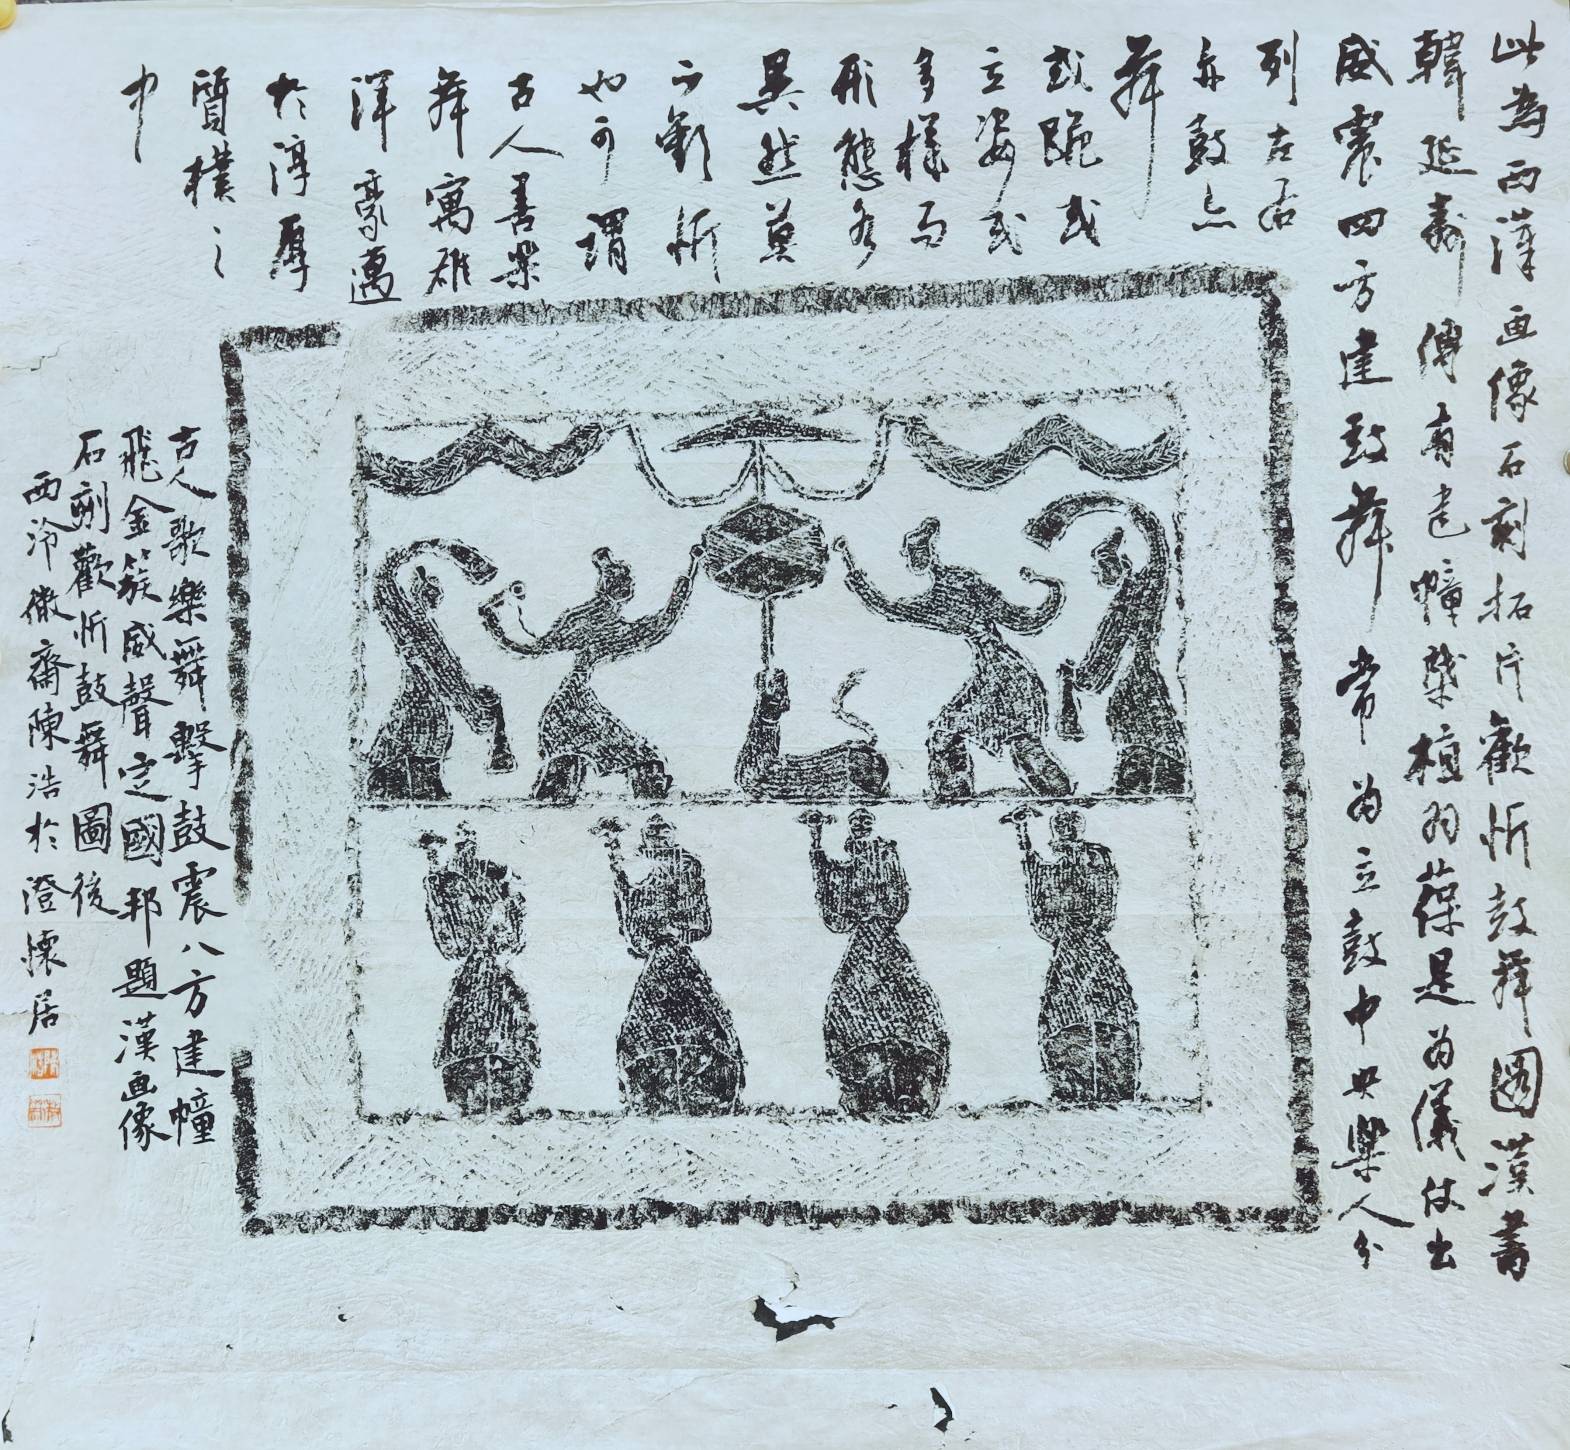 此為西漢画像石刻拓片歡忻鼓舞圖漢書
韓延壽傳有建幢棨植羽葆是为儀仗出
威震四方建鼓舞常为立鼓中央樂人分
列左右
亦鼓亦
舞
或跪或
立姿或
多樣而
形態各
異然莫
不歡忻
也可謂
古人善樂
舞寓雄
渾豪邁
於淳厚
質樸之
中
古人歌樂舞擊鼓震八方建幢
飛金簇威聲定國邦題漢画像
石刻歡忻鼓舞圖後
西泠傲齋陳浩於澄懷居